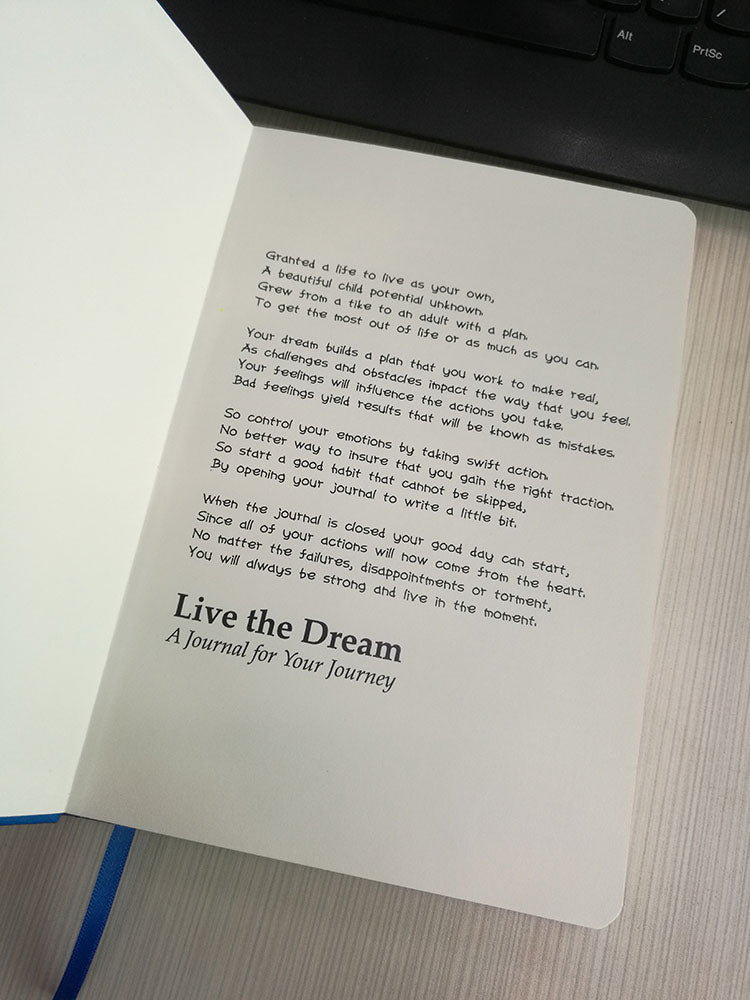 Alt
PrtSc
/
Granted a life to live as your own,
A beautiful child potential unknown.
Grew from a tike to an adult with a plan.
To get the most out of life or as much as you can.
Your dream builds a plan that you work to make real,
As challenges and obstacles impact the way that you feel.
Your feelings will influence the actions you take.
Bad feelings yield results that will be known as mistakes.
So control your emotions by taking swift action.
No better way to insure that you gain the right traction.
So start a good habit that cannot be skipped,
By opening your journal to write a little bit.
When the journal is closed your good day can start,
Since all of your actions will now come from the heart.
No matter the failures, disappointments or torment,
You will always be strong and live in the moment.
Live the Dream
A Journal for Your Journey